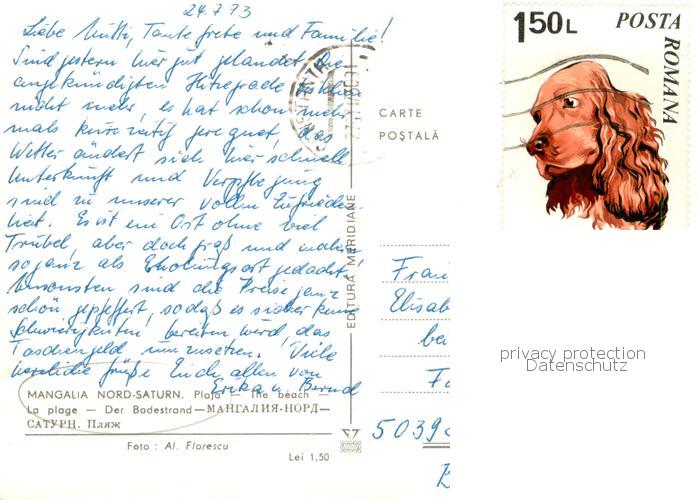 24.7.73
Liebe Mutti, Tante Grete und Familie!
Sind gestern hier gut gelandet. Die
angekündigten Hitzegrade
nicht mehr, es hat schon mehr-
mals kurzzeitig geregnet, das
Wetter ändert sich hier schnell
Unterkunft und Verpflegung
sind zu unserer vollen Zufrieden-
heit. Es ist ein Ort ohne viel
Trubel, aber doch groß und
so ganz als Erholungsort gedacht.
Ansonsten sind die Preise ganz
schön gepfeffert, sodaß es sicher keine
Schwierigkeiten bereiten wird, das
Taschengeld umzusetzen. Viele
herzliche Grüße Euch allen von
Erika u. Bernd
MANGALIA NORD-SATURN. Plaja — The beach —
La plage — Der Badestrand — МАНГАЛИЯ-НОРД—
САТУРН. Пляж
Foto : Al. Florescu
Lei 1,50
EDITURA MERIDIANE
CARTE
POŞTALĂ
Frau
Elisab
be
5039
1·50L
POSTA
ROMANA
privacy protection
Datenschutz